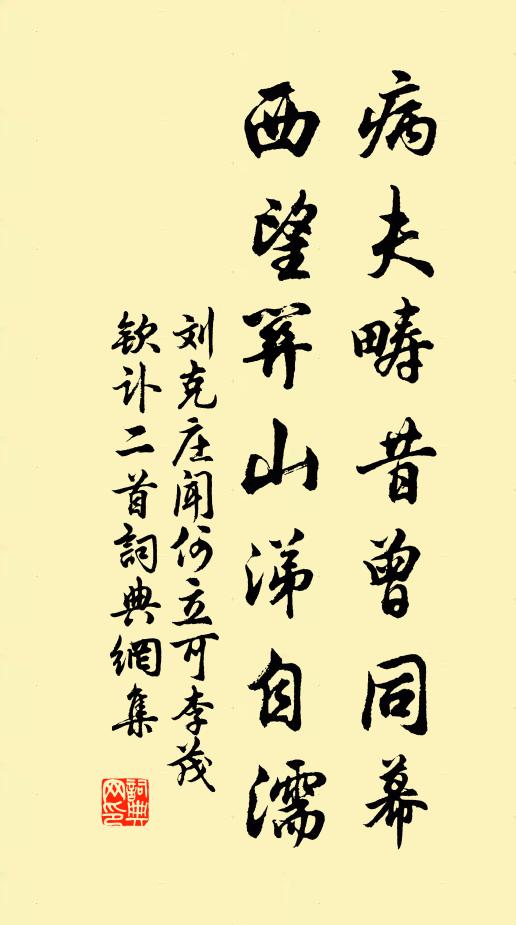 病夫畴昔曾同幕
西望關山涕自濡
刘克庄闻何立可李茂
钦讣二首詞典網集
詞典网印